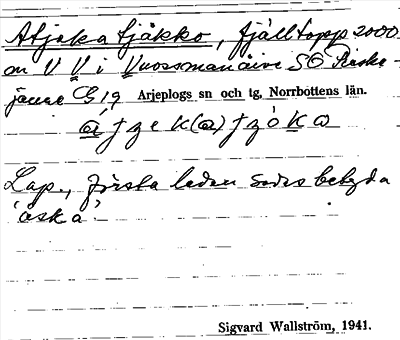 Atjeka tjåkko, fjälltopp 2000
m V V i Vuossmanåive SÖ Pieske-
jaure G 19 Arjeplogs sn och tg, Norrbottens län.
Lap., första leden sades betyda
'åska'.
Sigvard Wallström, 1941.